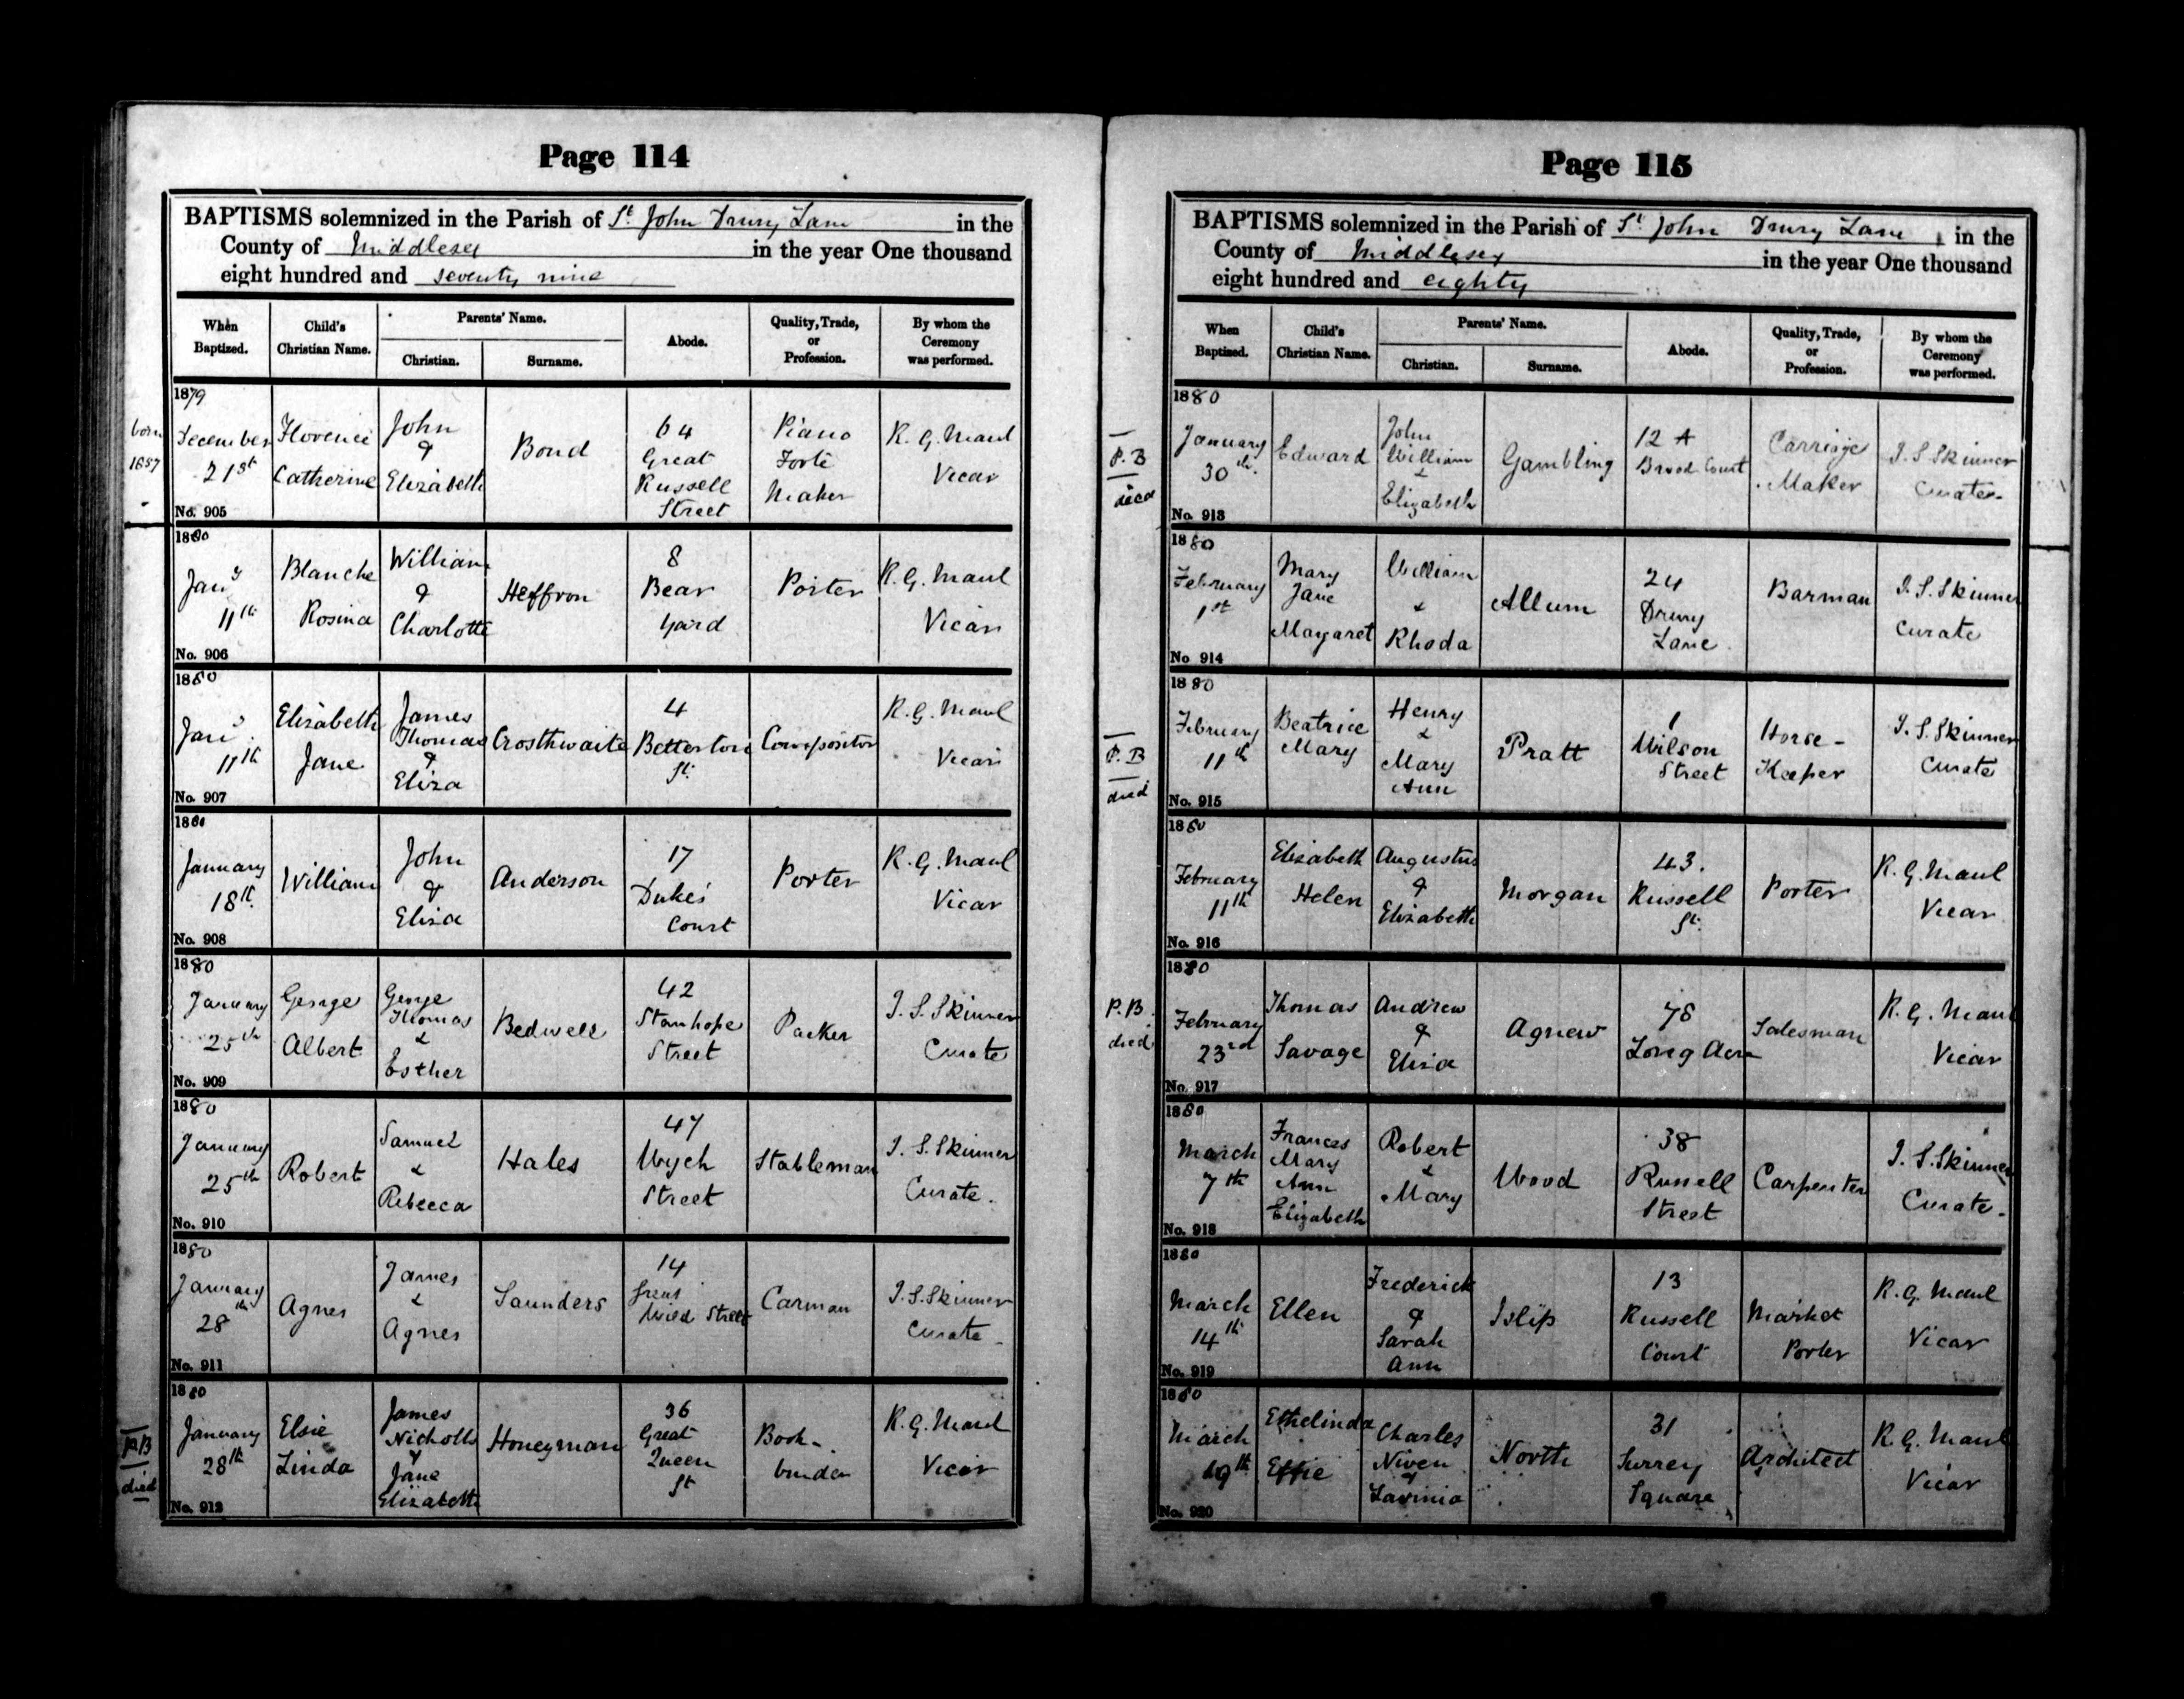 Page 114
BAPTISMS solemnized in the Parish of St John Drury Lane in the
County of Middlesex in the year One thousand
eight hundred and seventy nine
When Baptized. Child's Christian Name. Parents' Name. Christian. Surname. Abode. Quality, Trade, or Profession. By whom the Ceremony was performed.
born 1857
1879 December 21st No. 905 Florence Catherine John & Elizabeth Bond 64 Great Russell Street Piano Forte Maker R. G. Maul Vicar
1880 Jany 11th No. 906 Blanche Rosina William & Charlotte Heffron 8 Bear Yard Porter R. G. Maul Vicar
1880 Jany 11th No. 907 Elizabeth Jane James Thomas & Eliza Crosthwaite 4 Betterton St. Compositor R. G. Maul Vicar
1880 January 18th No. 908 William John & Eliza Anderson 17 Duke's Court Porter R. G. Maul Vicar
1880 January 25th No. 909 George Albert George Thomas & Esther Bedwell 42 Stanhope Street Packer J. S. Skinner Curate
1880 January 25th No. 910 Robert Samuel & Rebecca Hales 47 Wych Street Stableman J. S. Skinner Curate.
1880 January 28th No. 911 Agnes James & Agnes Saunders 14 Great Wild Street Carman J. S. Skinner Curate
P.B died
1880 January 28th No. 912 Elsie Linda James Nicholls & Jane Elizabeth Honeyman 36 Great Queen St Book-binder R. G. Maul Vicar
Page 115
BAPTISMS solemnized in the Parish of St John Drury Lane in the
County of Middlesex in the year One thousand
eight hundred and eighty
When Baptized. Child's Christian Name. Parents' Name. Christian. Surname. Abode. Quality, Trade, or Profession. By whom the Ceremony was performed.
P.B died
1880 January 30th. No. 913 Edward John William & Elizabeth Gambling 12 A Broad Court Carriage Maker J. S. Skinner Curate.
1880 February 1st No 914 Mary Jane Margaret William & Rhoda Allum 24 Drury Lane. Barman J. S. Skinner Curate
P.B died
1880 February 11th No. 915 Beatrice Mary Henry & Mary Ann Pratt 1 Wilson Street Horse-Keeper J. S. Skinner Curate
1880 February 11th No. 916 Elizabeth Helen Augustus & Elizabeth Morgan 43. Russell St. Porter R. G. Maul Vicar
P.B. died
1880 February 23rd No. 917 Thomas Savage Andrew & Eliza Agnew 78 Long Acre Salesman R. G. Maul Vicar
1880 March 7th No. 918 Frances Mary Ann Elizabeth Robert & Mary Wood 38 Russell Street Carpenter J. S. Skinner Curate.
1880 March 14th No. 919 Ellen Frederick & Sarah Ann Islip 13 Russell Court Market Porter R. G. Maul Vicar
1880 March 19th No. 920 Ethelinda Effie Charles Niven & Lavinia North 31 Surrey Square Architect R. G. Maul Vicar